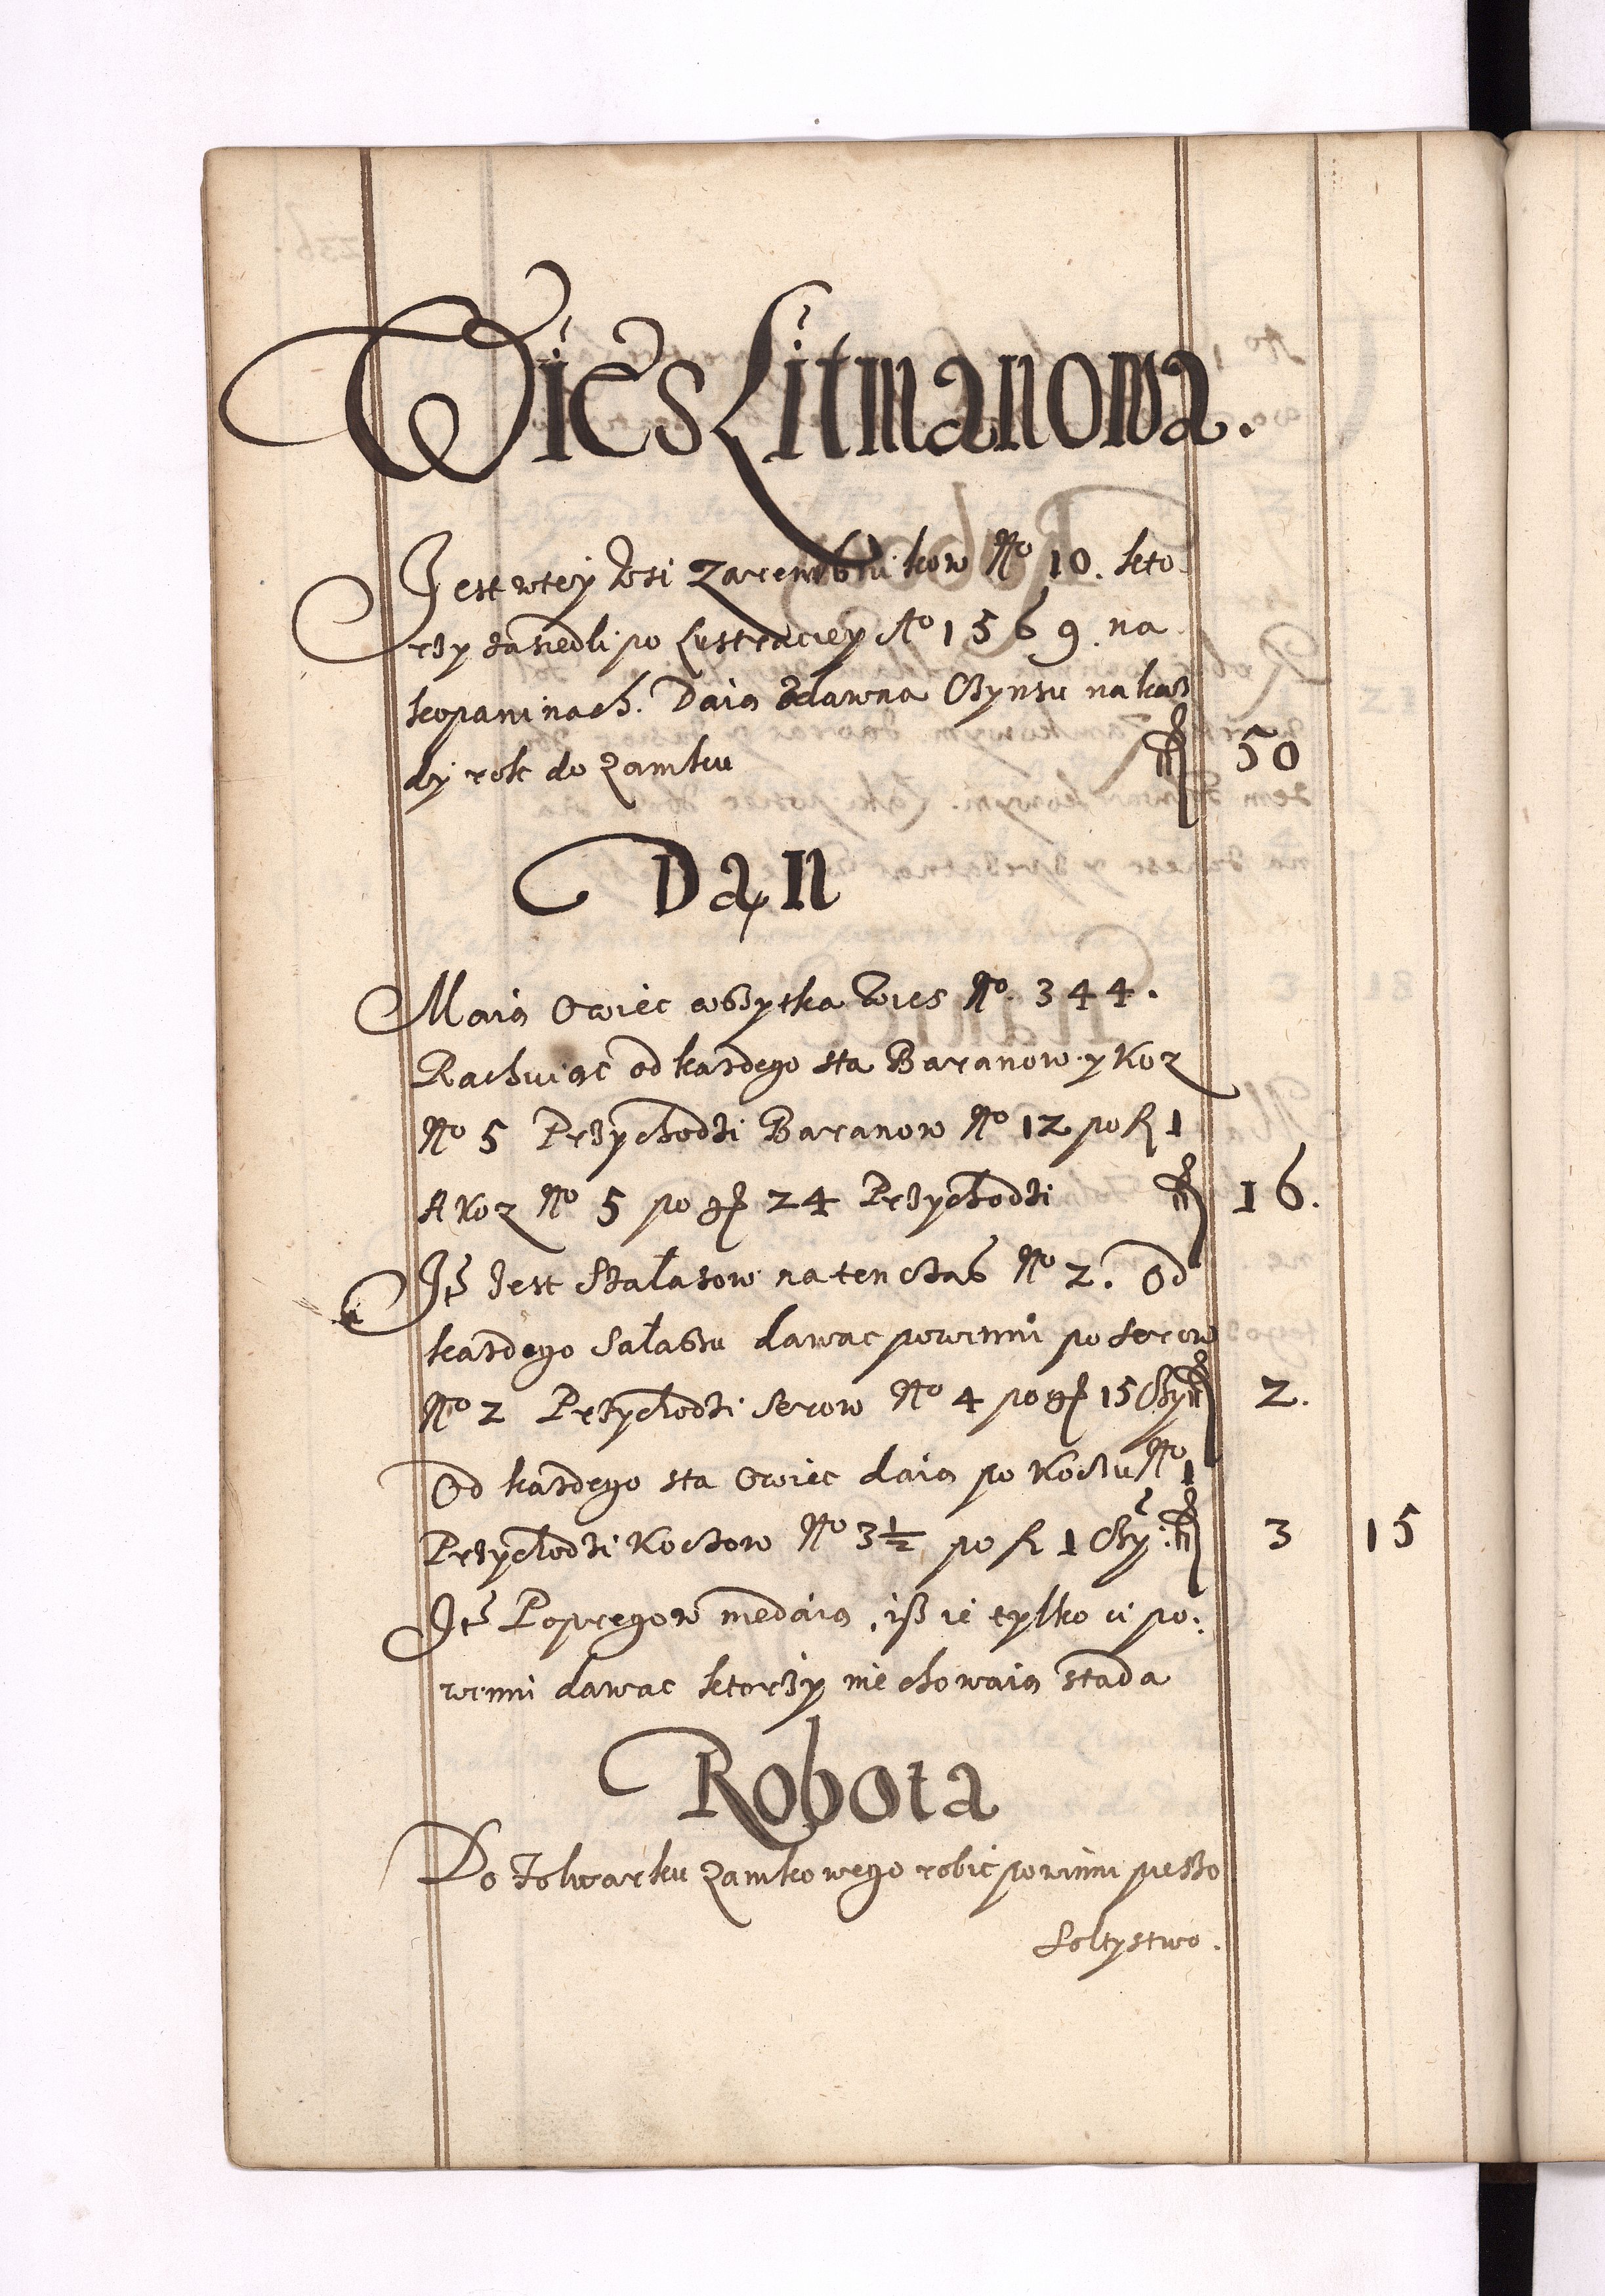 Wies Litmanowa.
Jest wtey Wsi Zarembnikow No 10. kto
rzy zasiedli po Lustraciey Ao 1569. na
kopaninach. Daią zdawna Czynsu na kaz
dy rok do Zamku fl 50
Dań
Maią Owiec wszytka Wies No. 344.
Rachuiąc od kazdego sta Baranow y Koz
No 5 Przychodzi Baranow No 12 po fl 1
A Koz No 5 po gr 24 Przychodzi fl 16.
Itē Jest Szałasow na ten czas No 2. Od
kazdego Sałaszu dawac powinni po serow
No 2 Przychodzi Serow No 4 po gr 15 Czy fl 2.
Od kazdego sta Owiec daią po Koczu No 1
Przychodzi Koczow No 3½ po fl 1 Czy: fl 3 15
Itē Popręgow niedaią, isz ie tylko ci po:
winni dawac ktorzy nie chowaią stada
Robota
Do Folwarku Zamkowego robic powinni pieszo
Soltystwo.